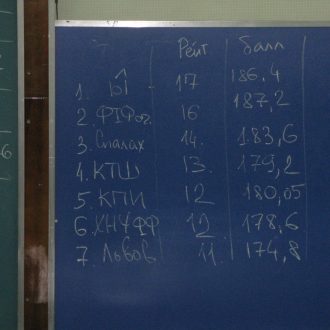 Рейт балл
1. 17 186,4
2. ФТФ 16 187,2
3. Спалах 14. 183,6
4. КТШ 13. 179,2
5. КПИ 12 180,05
6. ХНУФФ 12 178,6
7. Львов 11. 174,8